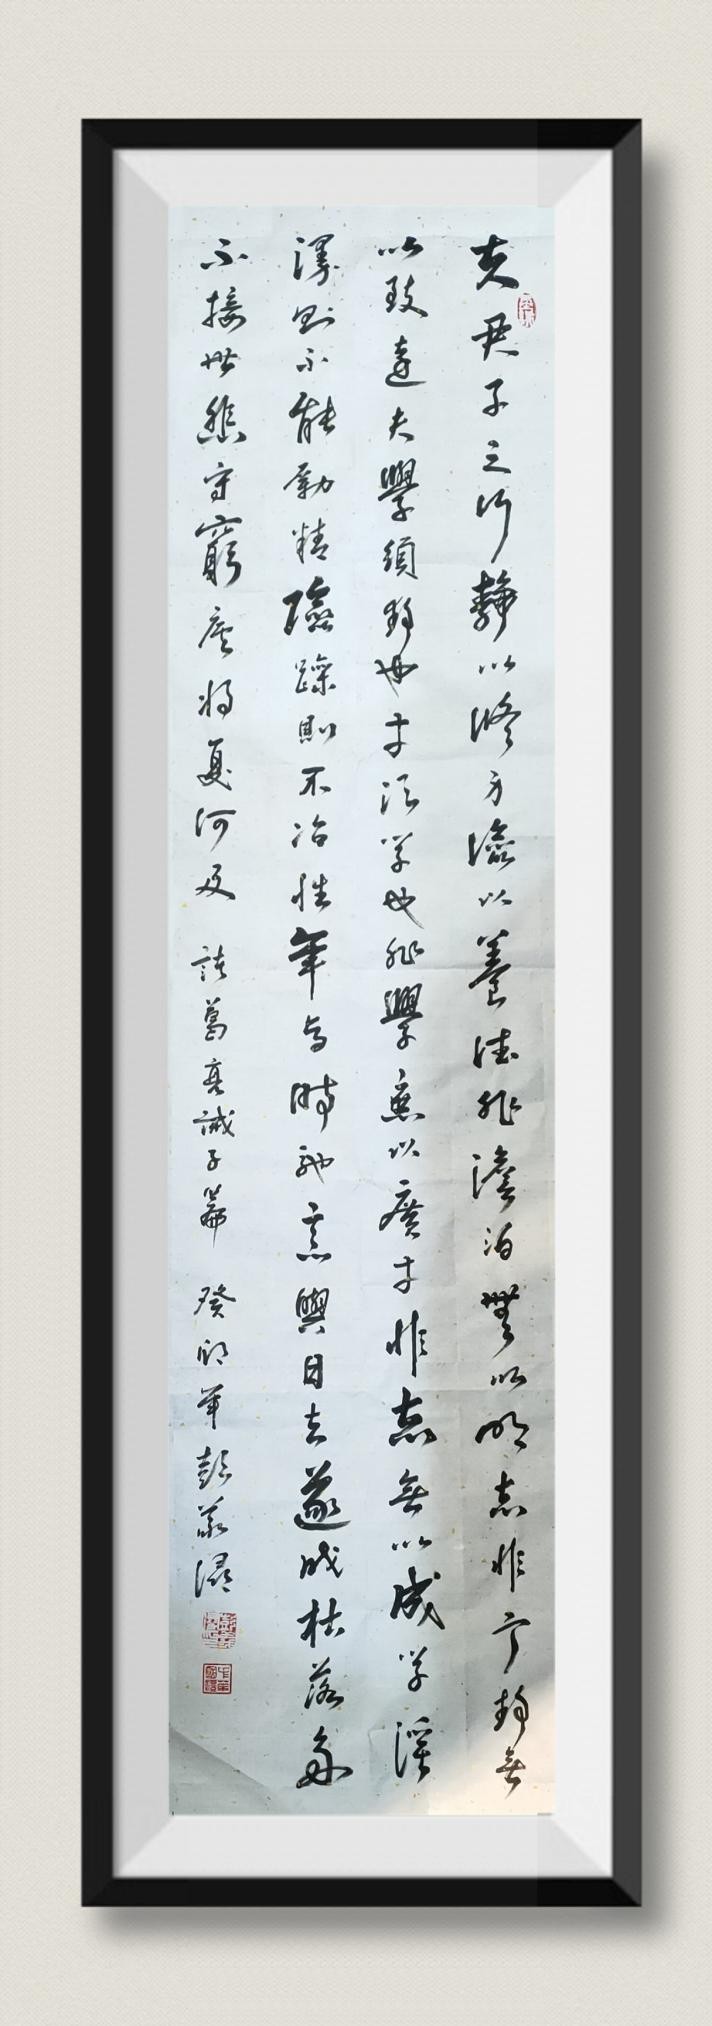 夫君子之行静以修身儉以養德非澹泊無以明志非宁静無
以致遠夫學須静也才須学也非學無以廣才非志無以成学淫
漫則不能勵精險躁則不冶性年与時馳意與日去遂成枯落多
不接世悲守窮廬将復何及 諸葛亮誡子篇 癸卯年彭